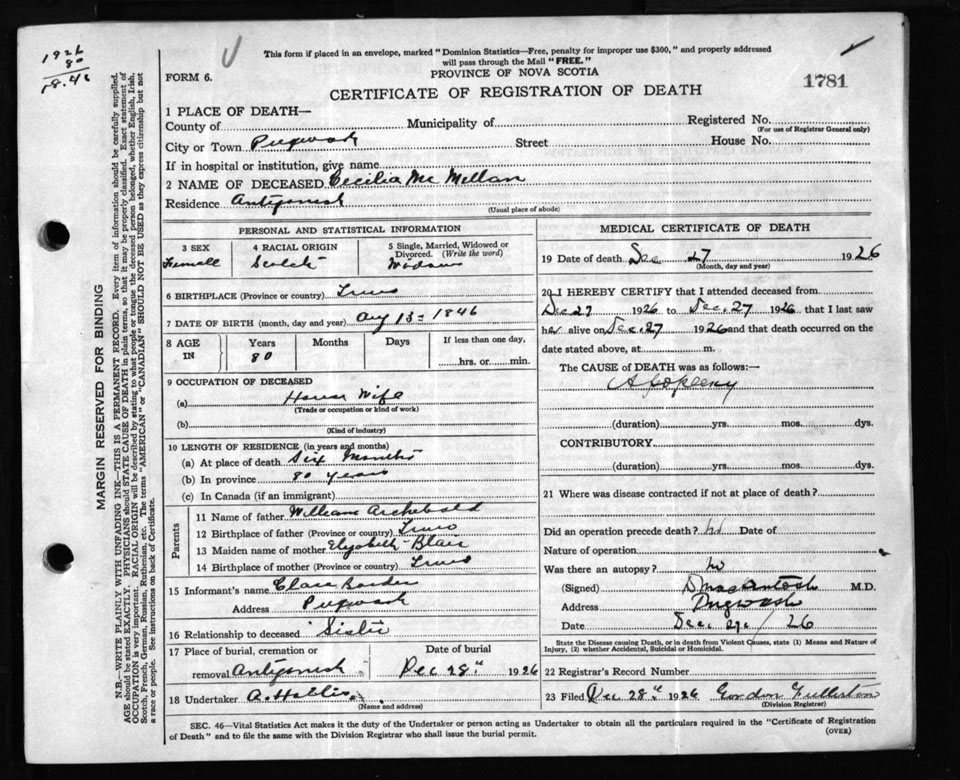 1926
80
This form if placed in an envelope, marked "Dominion Statistics—Free, penalty for improper use $300," and properly addressed
will pass through the Mail "FREE."
FORM 6.
PROVINCE OF NOVA SCOTIA
CERTIFICATE OF REGISTRATION OF DEATH
1781
MARGIN RESERVED FOR BINDING
N.B.—WRITE PLAINLY WITH UNFADING INK—THIS IS A PERMANENT RECORD. Every item of information should be carefully supplied.
AGE should be stated EXACTLY. PHYSICIANS should STATE CAUSE OF DEATH in plain terms, so that it may be properly classified. Exact statement of
OCCUPATION is very important. RACIAL ORIGIN will be described by stating to what people or tongue the deceased person belonged, whether English, Irish,
Scotch, French, German, Russian, Ruthenian, etc. The terms "AMERICAN" or "CANADIAN" SHOULD NOT BE USED as they express citizenship but not
a race or people. See instructions on back of Certificate.
1 PLACE OF DEATH—
County of Municipality of Registered No.
(For use of Registrar General only)
City or Town Pugwash Street House No.
If in hospital or institution, give name
2 NAME OF DECEASED Cecilia McMillan
Residence Antigonish
(Usual place of abode)
PERSONAL AND STATISTICAL INFORMATION
3 SEX 4 RACIAL ORIGIN 5 Single, Married, Widowed or
Divorced. (Write the word)
Femall Scotch Widow
6 BIRTHPLACE (Province or country) Truro
7 DATE OF BIRTH (month, day and year) Aug 13 = 1846
8 AGE IN Years Months Days If less than one day,
80 hrs. or min.
9 OCCUPATION OF DECEASED
(a) House Wife
(Trade or occupation or kind of work)
(b)
(Kind of industry)
10 LENGTH OF RESIDENCE (in years and months)
(a) At place of death Six Months
(b) In province 80 years
(c) In Canada (if an immigrant)
Parents
11 Name of father William Archebald
12 Birthplace of father (Province or country) Truro
13 Maiden name of mother Elyzabeth Blair
14 Birthplace of mother (Province or country) Truro
15 Informant's name
Address Pugwash
16 Relationship to deceased Sister
17 Place of burial, cremation or Date of burial
removal Antigonish Dec 28th 1926
18 Undertaker A. Hollis
(Name and address)
MEDICAL CERTIFICATE OF DEATH
19 Date of death Dec 27 1926
(Month, day and year)
20 I HEREBY CERTIFY that I attended deceased from
Dec 27 1926 to Dec. 27 1926 that I last saw
her alive on Dec. 27 1926 and that death occurred on the
date stated above, at m.
The CAUSE of DEATH was as follows:—
(duration) yrs. mos. dys.
CONTRIBUTORY
(duration) yrs. mos. dys.
21 Where was disease contracted if not at place of death?
Did an operation precede death? No Date of
Nature of operation
Was there an autopsy? No
(Signed) D MacKintosh M.D.
Address Pugwash
Date Dec. 27 / 26
State the Disease causing Death, or in death from Violent Causes, state (1) Means and Nature of
Injury, (2) whether Accidental, Suicidal or Homicidal.
22 Registrar's Record Number
23 Filed Dec 28th 1926 Gordon Fullerton
(Division Registrar)
SEC. 46—Vital Statistics Act makes it the duty of the Undertaker or person acting as Undertaker to obtain all the particulars required in the "Certificate of Registration
of Death" and to file the same with the Division Registrar who shall issue the burial permit.
(OVER)